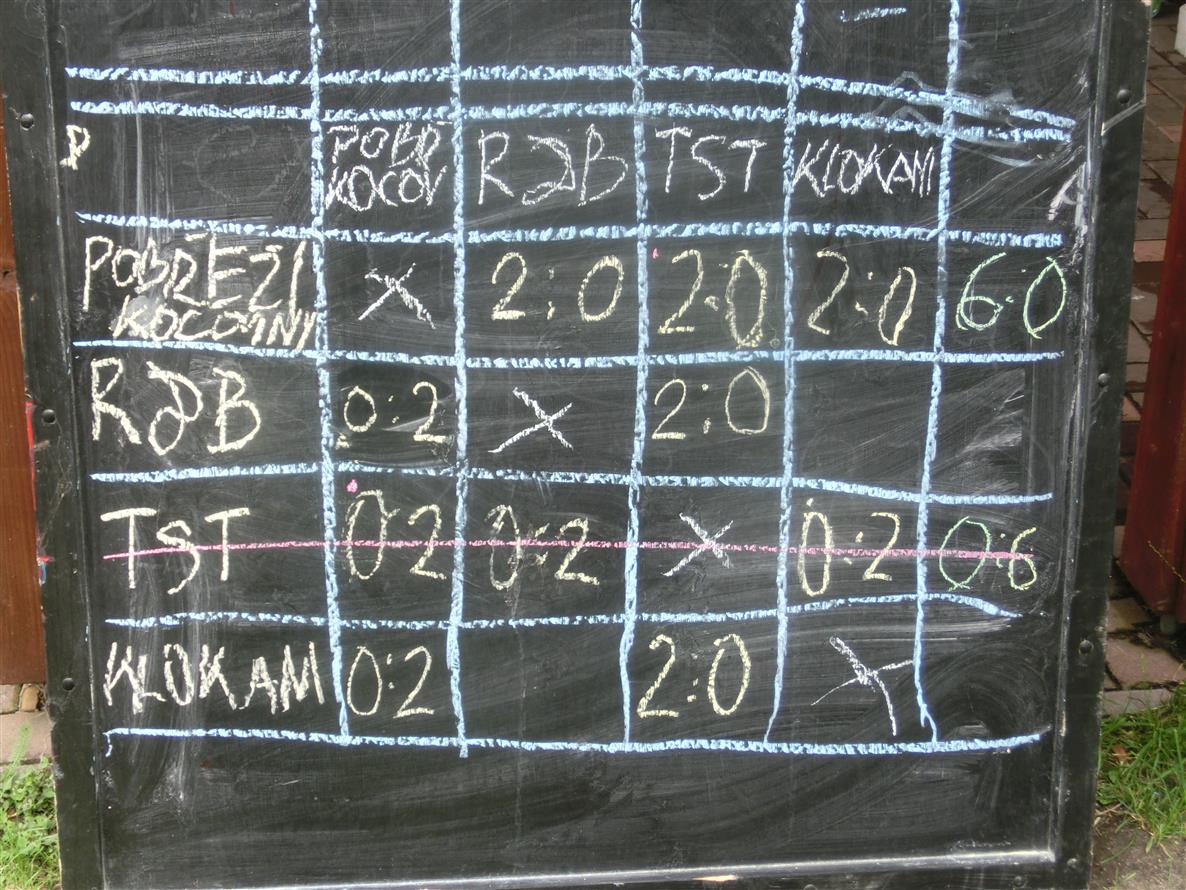 P
POBŘ KOCOV RDB TST KLOKANI
POBŘEŽÍ KOCOVINY X 2:0 2:0 2:0 6:0
RDB 0:2 X 2:0
TST 0:2 0:2 X 0:2 0:6
KLOKANI 0:2 2:0 X